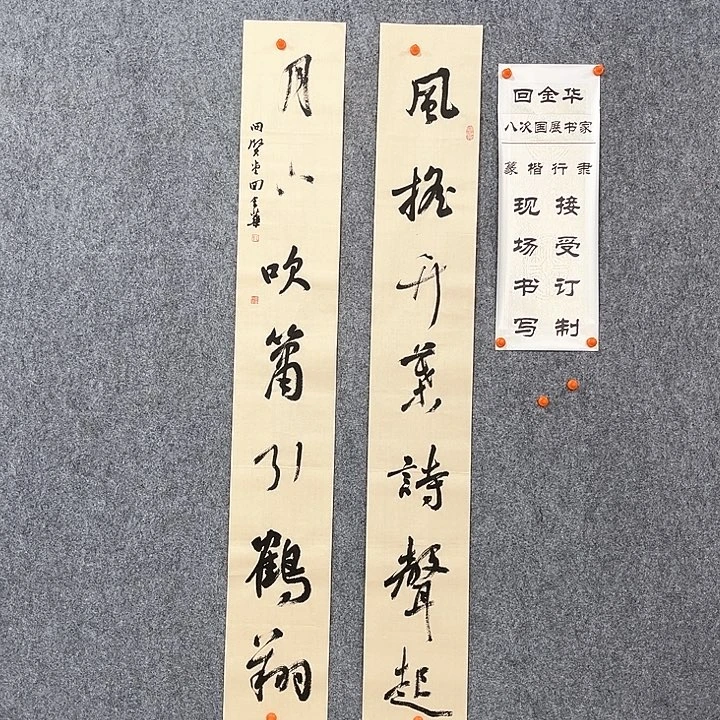 風搖竹葉詩聲起
月下吹簫引鶴翔
回賢堂回金華
回金华
八次国展书家
篆楷行隶
现场书写
接受订制